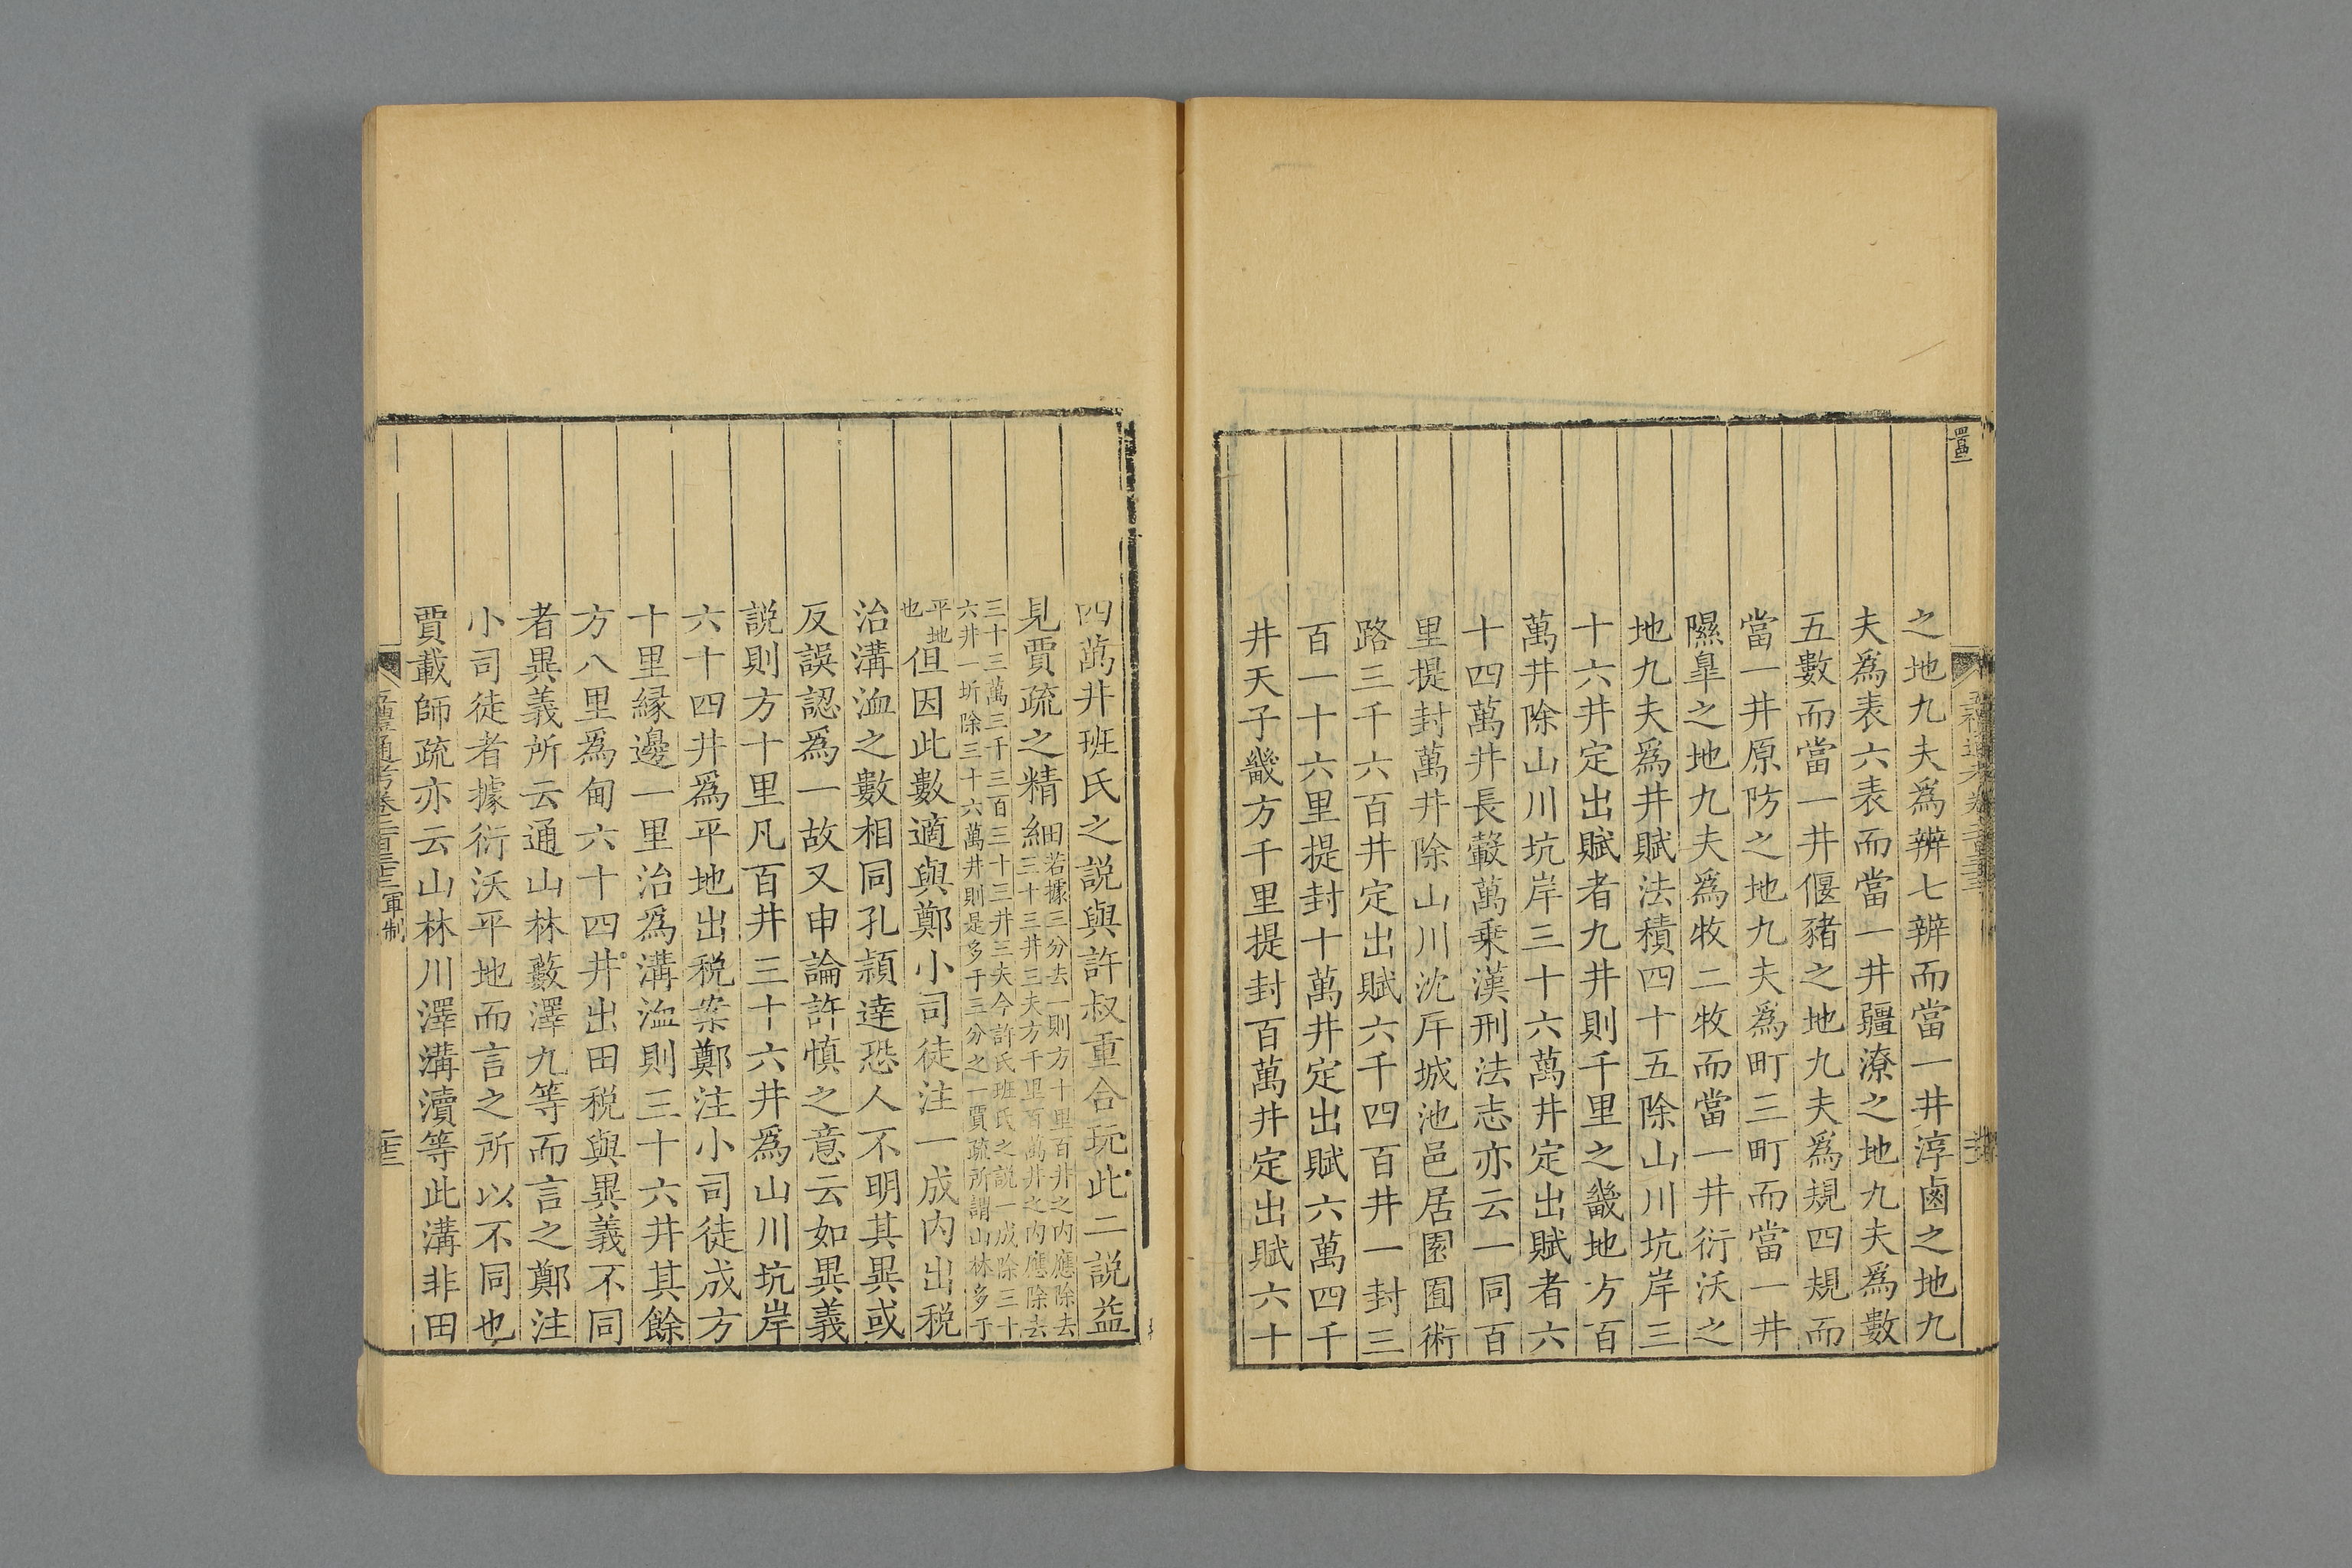 之地九夫爲辨七辨而當一井淳鹵之地九
夫爲表六表而當一井疆潦之地九夫爲數
五數而當一井偃豬之地九夫爲規四規而
當一井原防之地九夫爲町三町而當一井
隰臯之地九夫爲牧二牧而當一井衍沃之
地九夫爲井賦法積四十五除山川坑岸三
十六井定出賦者九井則千里之畿地方百
萬井除山川坑岸三十六萬井定出賦者六
十四萬井長轂萬乗漢刑法志亦云一同百
里提封萬井除山川沈斥城池邑居園囿術
路三千六百井定出賦六千四百井一封三
百一十六里提封十萬井定出賦六萬四千
井天子畿方千里提封百萬井定出賦六十
四萬井班氏之説與許叔重合玩此二説益
見賈疏之精細若據三分去一則方十里百井之内應除去
三十三井三夫方千里百萬井之内應除去
三十三萬三千三百三十三井三夫今許氏班氏之説一成除三十
六井一圻除三十六萬井則是多于三分之一賈疏所謂山林多于
平地
也但因此數適與鄭小司徒注一成内出税
治溝洫之數相同孔頴達恐人不明其異或
反誤認爲一故又申論許慎之意云如異義
説則方十里凡百井三十六井爲山川坑岸
六十四井爲平地出税案鄭注小司徒成方
十里縁邊一里治爲溝洫則三十六井其餘
方八里爲甸六十四井出田税與異義不同
者異義所云通山林藪澤九等而言之鄭注
小司徒者據衍沃平地而言之所以不同也
賈載師疏亦云山林川澤溝瀆等此溝非田
五禮通考卷二百三十三 軍制